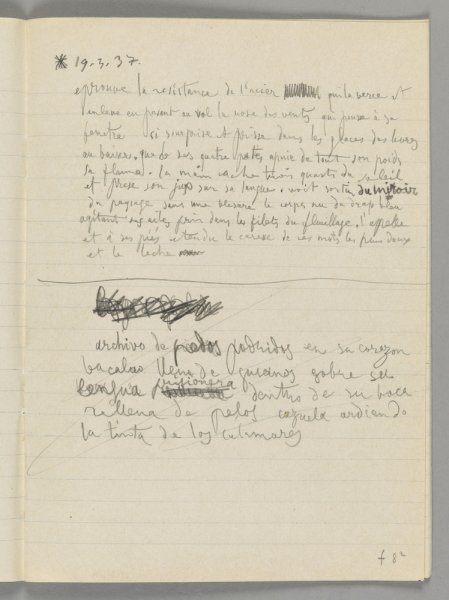 * 19.3.37.
eprouve la resistance de l'acier qui la berce et
l'enleve en posant au vol la rose des vents qui pense à sa
fenetre si surprise et prise dans les glaces des levres
au baiser. que ses quatre pattes apuie de tout son poids
sa flamme. la main cache trois quarts du soleil
et presse son jus sur sa langue. voit sortir du miroir
du paysage sans une blessure le corps nu du drap bleu
agitant ses ailes pris dans les filets du feuillage. l'appelle
et à ses pieds etendu la caresse de ces mots les plus doux
et le leche
archivo de pedos podridos en su corazon
bacalao lleno de gusanos sobre su
lengua prisionera dentro de su boca
rellena de pelos cazuela ardiendo
la tinta de los calamares
f 8²